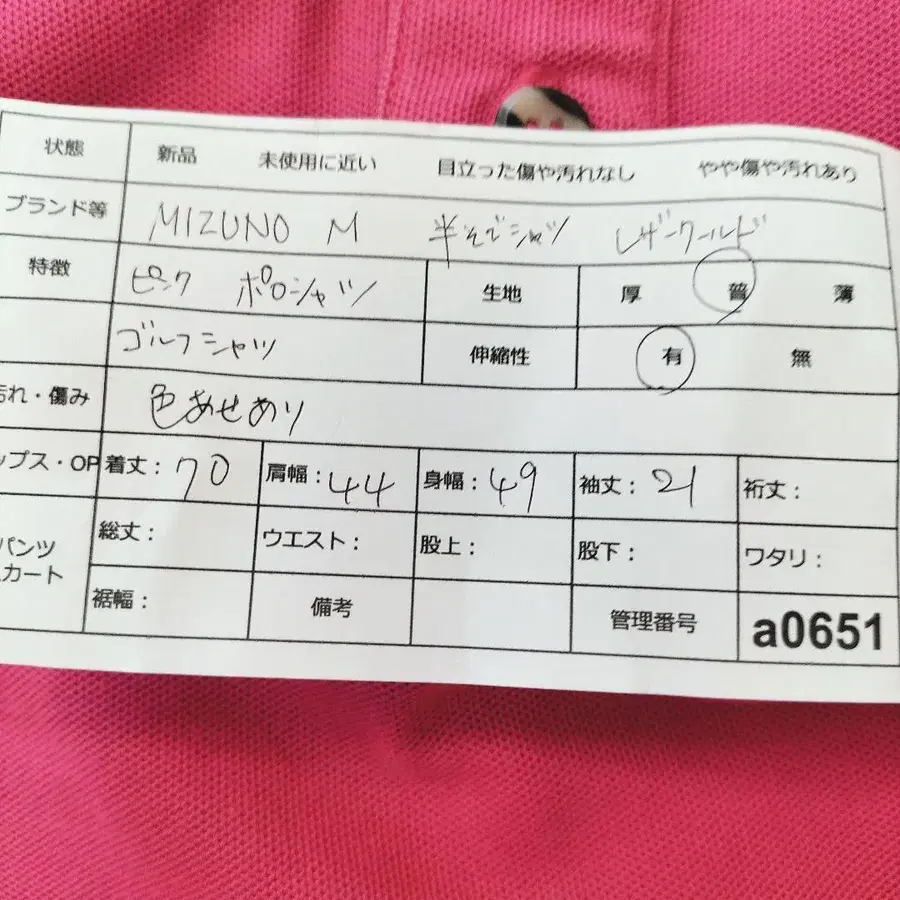 状態 新品 未使用に近い 目立った傷や汚れなし やや傷や汚れあり
ブランド等 MIZUNO M 半そでシャツ レザークールド
特徴 ピンク ポロシャツ 生地 厚 普 薄
ゴルフシャツ 伸縮性 有 無
汚れ・傷み 色あせあり
ップス・OP 着丈：70 肩幅：44 身幅：49 袖丈：21 裄丈：
パンツ 総丈： ウエスト： 股上： 股下： ワタリ：
スカート 裾幅： 備考 管理番号 a0651